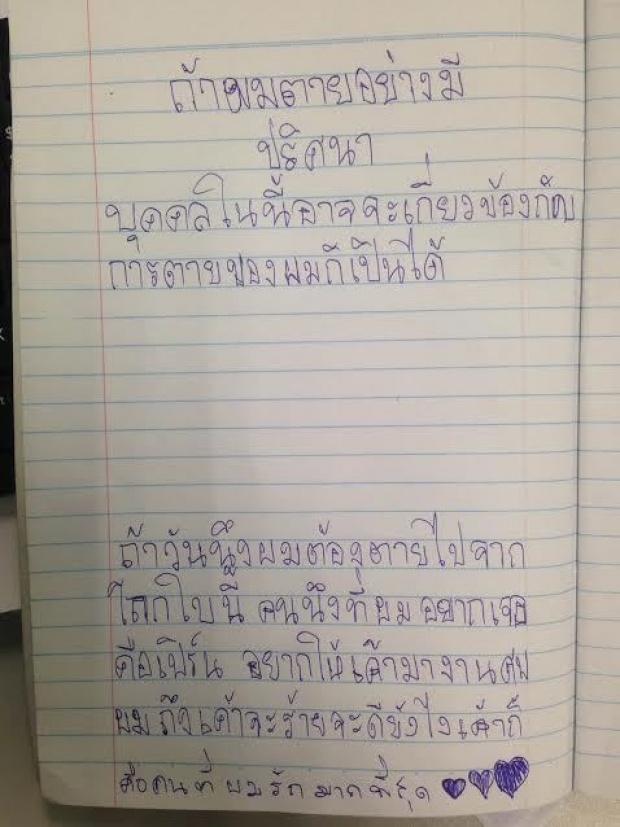 ถ้าผมตายอย่างมี
ปริศนา
บุคคลในนี้อาจจะเกี่ยวข้องกับ
การตายของผมก็เป็นได้
ถ้าวันนึงผมต้องตายไปจาก
โลกใบนี้ คนนึงที่ผมอยากเจอ
คือเปิร์น อยากให้เค้ามางานศพ
ผม ถึงเค้าจะร้ายจะดียังไงเค้าก็
คือคนที่ผมรักมากที่สุด